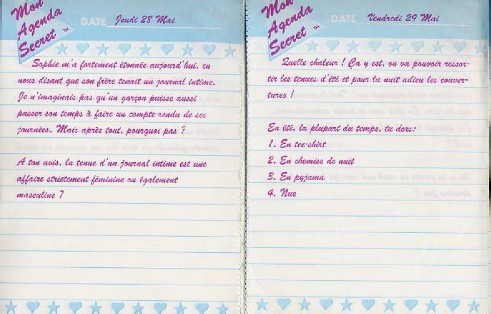 Mon
Agenda
Secret ™
DATE Jeudi 28 Mai
Sophie m'a fortement étonnée aujourd'hui, en
nous disant que son frère tenait un journal intime.
Je n'imaginais pas qu'un garçon puisse aussi
passer son temps à faire un compte rendu de ses
journées. Mais après tout, pourquoi pas ?
A ton avis, la tenue d'un journal intime est une
affaire strictement féminine ou également
masculine ?
Mon
Agenda
Secret ™
DATE Vendredi 29 Mai
Quelle chaleur ! Ça y est, on va pouvoir ressor-
tir les tenues d'été et pour la nuit adieu les couver-
tures !
En été, la plupart du temps, tu dors:
1. En tee-shirt
2. En chemise de nuit
3. En pyjama
4. Nue